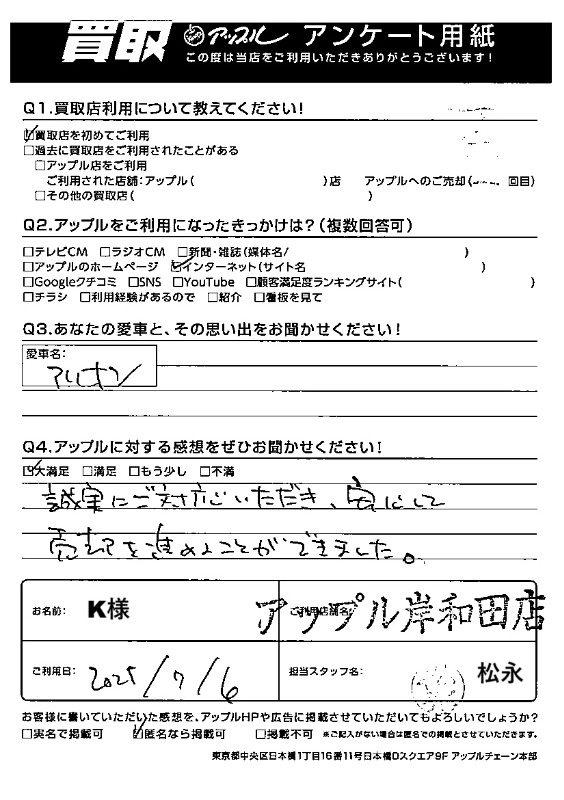 買取 アップル アンケート用紙
この度は当店をご利用いただきありがとうございます!
Q1.買取店利用について教えてください!
☑買取店を初めてご利用
□過去に買取店をご利用されたことがある
□アップル店をご利用
ご利用された店舗:アップル( )店 アップルへのご売却( 回目)
□その他の買取店( )
Q2.アップルをご利用になったきっかけは?(複数回答可)
□テレビCM □ラジオCM □新聞・雑誌(媒体名/ )
□アップルのホームページ ☑インターネット(サイト名 )
□Googleクチコミ □SNS □YouTube □顧客満足度ランキングサイト( )
□チラシ □利用経験があるので □紹介 □看板を見て
Q3.あなたの愛車と、その思い出をお聞かせください!
愛車名:
アリオン
Q4.アップルに対する感想をぜひお聞かせください!
☑大満足 □満足 □もう少し □不満
誠実にご対応いただき、安心して
売却を進めることができました。
お名前: K様 ご利用店舗名: アップル岸和田店
ご利用日: 2025/7/6 担当スタッフ名: 松永
お客様に書いていただいた感想を、アップルHPや広告に掲載させていただいてもよろしいでしょうか?
□実名で掲載可 ☑匿名なら掲載可 □掲載不可 ※ご記入がない場合は匿名での掲載とさせていただきます。
東京都中央区日本橋1丁目16番11号日本橋Dスクエア9F アップルチェーン本部